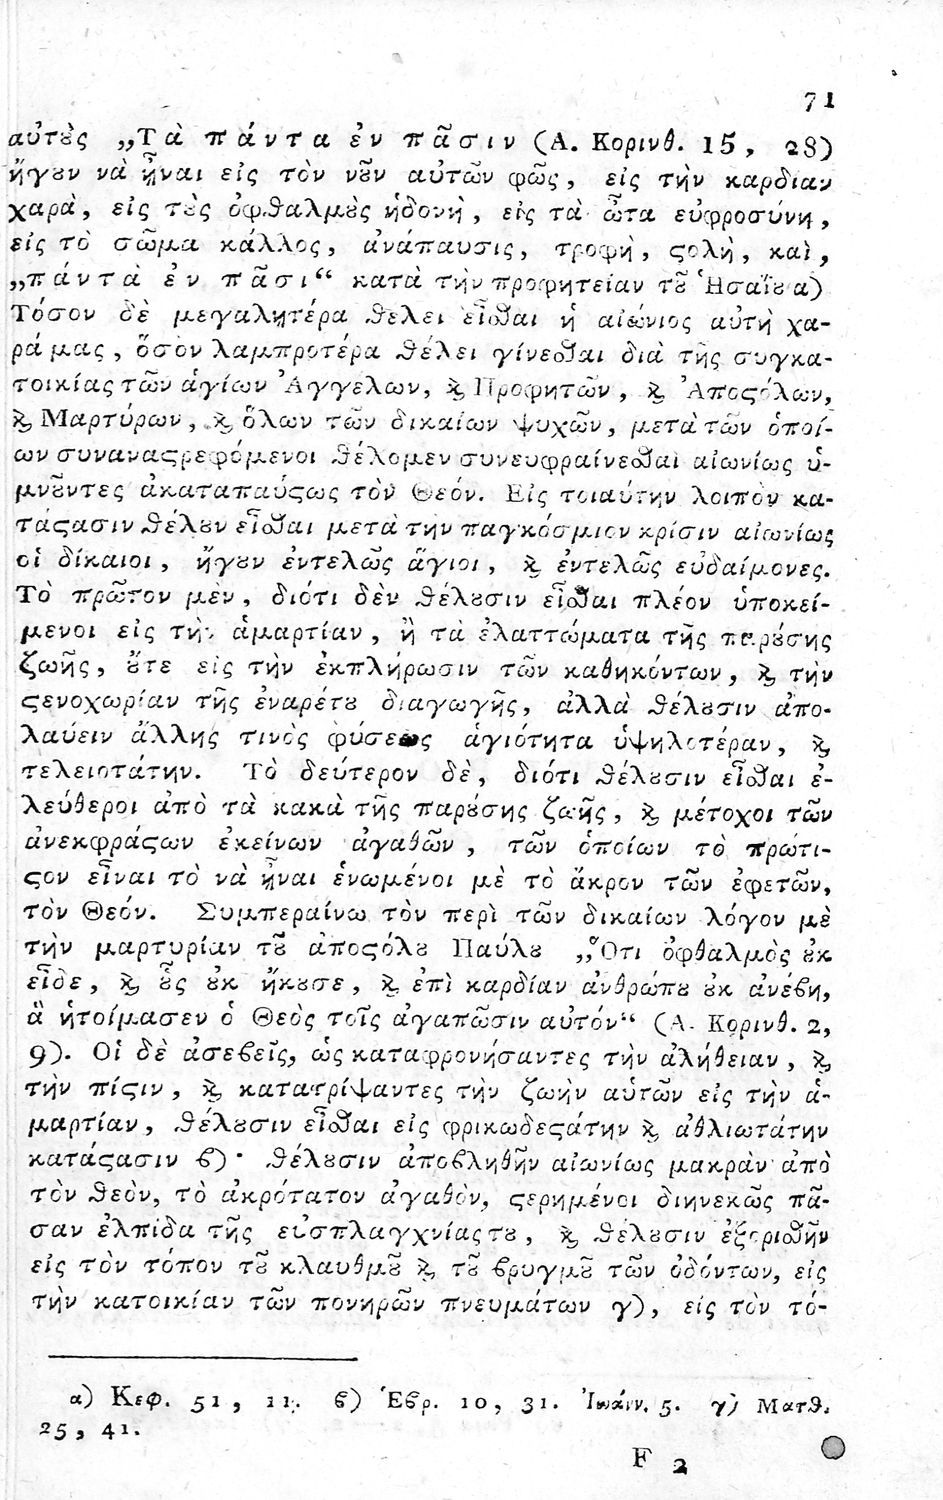 71
αὐτȣ̀ς „Τὰ πάντα ἐν πᾶσιν (Α. Κορινθ. 15, 28)
ἤγȣν νὰ ᾖναι εἰς τὸν νȣ͂ν αὐτῶν φῶς, εἰς τὴν καρδίαν
χαρὰ, εἰς τȣ̀ς ὀφθαλμȣ̀ς ἡδονὴ, εἰς τὰ ὦτα εὐφροσύνη,
εἰς τὸ σῶμα κάλλος, ἀνάπαυσις, τροφὴ, ϛολὴ, καὶ,
„πάντα ἐν πᾶσι“ κατὰ τὴν προφητείαν τȣ͂ Ἡσαΐȣ α)
Τόσον δὲ μεγαλῃτέρα θέλει εἶσθαι ἡ αἰώνιος αὐτὴ χα-
ρά μας, ὅσον λαμπροτέρα θέλει γίνεσθαι διὰ τῆς συγκα-
τοικίας τῶν ἁγίων Ἀγγέλων, ϗ Προφητῶν, ϗ Ἀποϛόλων,
ϗ Μαρτύρων, ϗ ὅλων τῶν δικαίων ψυχῶν, μετὰ τῶν ὁποί-
ων συναναϛρεφόμενοι θέλομεν συνευφραίνεσθαι αἰωνίως ὑ-
μνȣ͂ντες ἀκαταπαύϛως τὸν Θεόν. Εἰς τοιαύτην λοιπὸν κα-
τάϛασιν θέλȣν εἶσθαι μετὰ τὴν παγκόσμιον κρίσιν αἰωνίως
οἱ δίκαιοι, ἤγȣν ἐντελῶς ἅγιοι, ϗ ἐντελῶς εὐδαίμονες.
Τὸ πρῶτον μὲν, διότι δὲν θέλȣσιν εἶσθαι πλέον ὑποκεί-
μενοι εἰς τὴν ἁμαρτίαν, ἢ τὰ ἐλαττώματα τῆς παρȣ́σης
ζωῆς, ȣ́τε εἰς τὴν ἐκπλήρωσιν τῶν καθηκόντων, ϗ τὴν
ϛενοχωρίαν τῆς ἐναρέτȣ διαγωγῆς, ἀλλὰ θέλȣσιν ἀπο-
λαύειν ἄλλης τινὸς φύσεως ἁγιότητα ὑψηλοτέραν, ϗ
τελειοτάτην. Τὸ δεύτερον δὲ, διότι θέλȣσιν εἶσθαι ἐ-
λεύθεροι ἀπὸ τὰ κακὰ τῆς παρȣ́σης ζωῆς, ϗ μέτοχοι τῶν
ἀνεκφράϛων ἐκείνων ἀγαθῶν, τῶν ὁποίων τὸ πρώτι-
ϛον εἶναι τὸ νὰ ᾖναι ἑνωμένοι μὲ τὸ ἄκρον τῶν ἐφετῶν,
τὸν Θεόν. Συμπεραίνω τὸν περὶ τῶν δικαίων λόγον μὲ
τὴν μαρτυρίαν τȣ͂ ἀποϛόλȣ Παύλȣ „Ὅτι ὀφθαλμὸς ȣ̓κ
εἶδε, ϗ ȣ̓͂ς ȣ̓κ ἤκȣσε, ϗ ἐπὶ καρδίαν ἀνθρώπȣ ȣ̓κ ἀνέϐη,
ἃ ἡτοίμασεν ὁ Θεὸς τοῖς ἀγαπῶσιν αὐτόν“ (Α. Κορινθ. 2,
9). Οἱ δὲ ἀσεϐεῖς, ὡς καταφρονήσαντες τὴν ἀλήθειαν, ϗ
τὴν πίϛιν, ϗ κατατρίψαντες τὴν ζωὴν αὑτῶν εἰς τὴν ἁ-
μαρτίαν, θέλȣσιν εἶσθαι εἰς φρικωδεϛάτην ϗ ἀθλιωτάτην
κατάϛασιν ϐ)· θέλȣσιν ἀποϐληθῆν αἰωνίως μακρὰν ἀπὸ
τὸν θεὸν, τὸ ἀκρότατον ἀγαθὸν, ϛερημένοι διηνεκῶς πᾶ-
σαν ἐλπίδα τῆς εὐσπλαγχνίας τȣ, ϗ θέλȣσιν ἐξορισθῆν
εἰς τὸν τόπον τȣ͂ κλαυθμȣ͂ ϗ τȣ͂ ϐρυγμȣ͂ τῶν ὀδόντων, εἰς
τὴν κατοικίαν τῶν πονηρῶν πνευμάτων γ), εἰς τὸν τό-
α) Κεφ. 51, 11. ϐ) Ἑϐρ. 10, 31. Ἰωάνν. 5. γ) Ματθ.
25, 41.
F 2